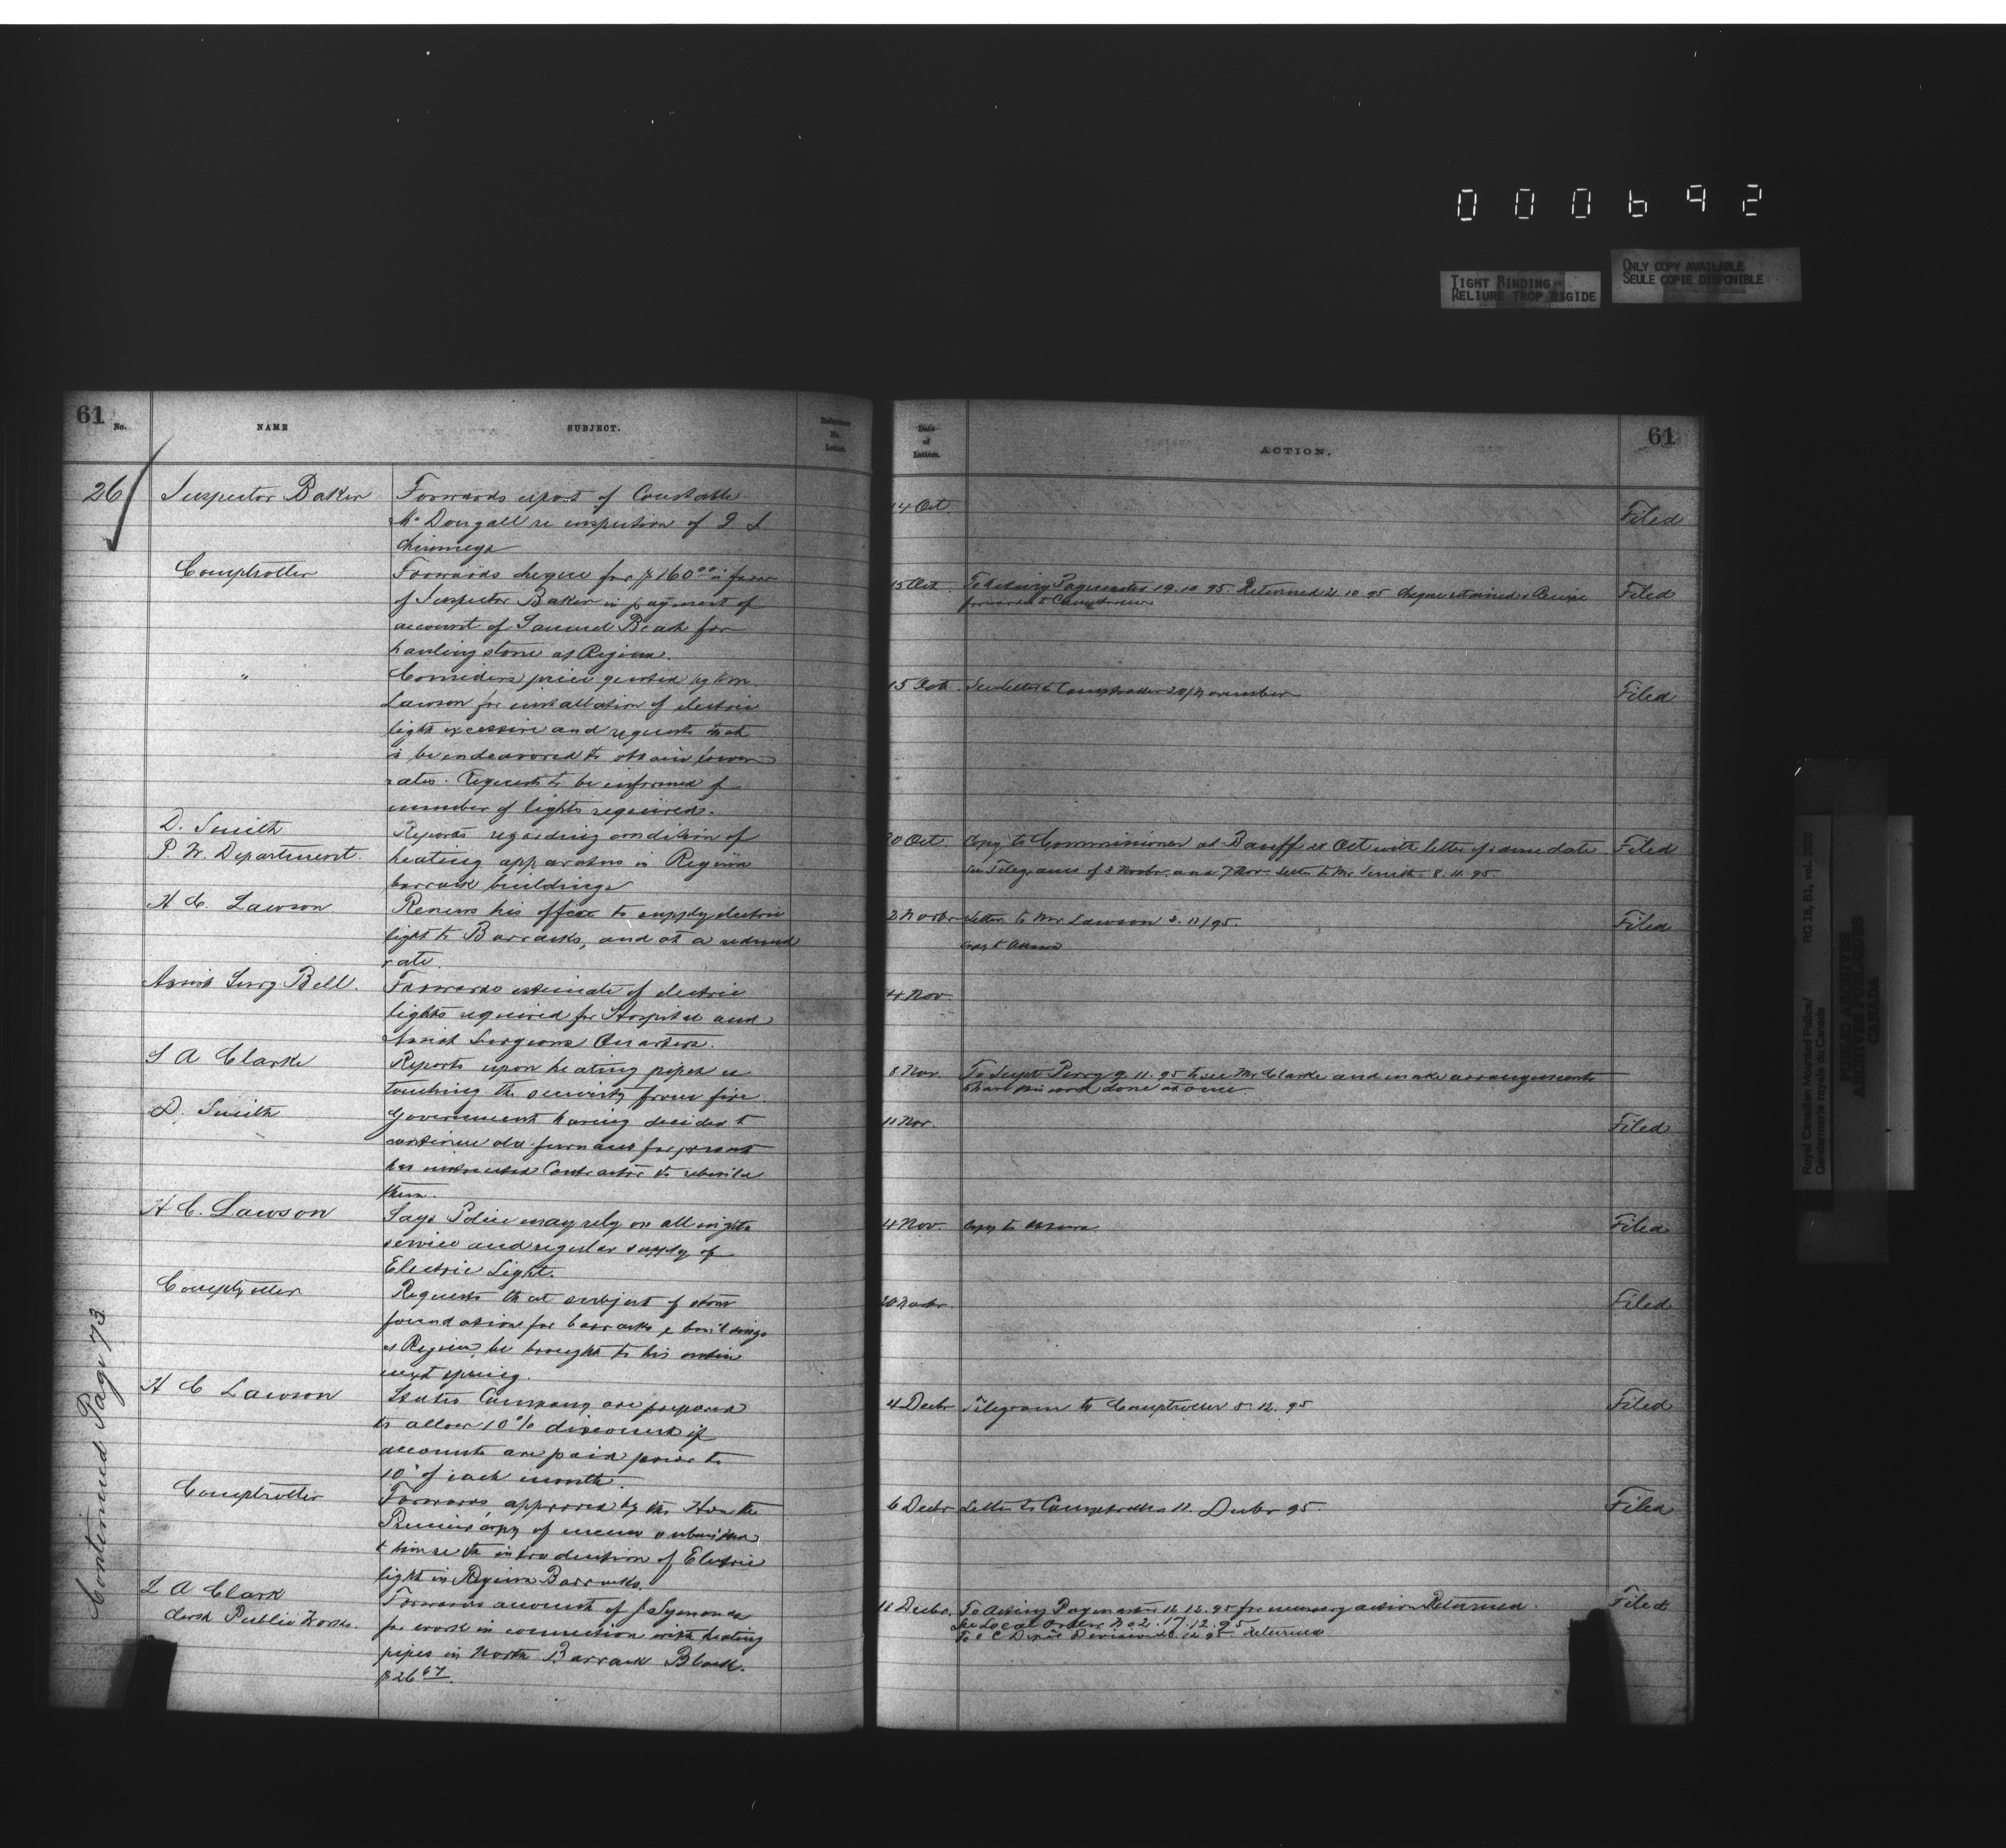 000692
TIGHT BINDING
RELIURE TROP RIGIDE
ONLY COPY AVAILABLE
SEULE COPIE DISPONIBLE
61
No.
NAME
SUBJECT.
Reference
No.
Letter.
26
Inspector Baker
Forwards report of Constable
McDougall re inspection of
chimneys
Comptroller
Forwards cheque for $160.00 in favor
of Inspector Baker in payment of
account of Samuel Beak for
hauling stone at Regina.
"
Considers price quoted by Mr.
Lawson for installation of electric
light excessive and requests that
be endeavored to obtain lower
rates. Requests to be informed of
number of lights required.
D. Smith
P. W. Department.
Reports regarding condition of
heating apparatus in Regina
barrack buildings
H C. Lawson
Renews his offer to supply electric
light to Barracks, and at a reduced
rate.
Assist Surg Bell.
Forwards estimate of electric
lights required for Hospital and
Assist Surgeons Quarters.
L A Clarke
Reports upon heating pipes
touching the security from fire
D. Smith
Government having decided to
continue old furnaces for present
has instructed Contractor to rebuild
them.
H C. Lawson
Says Police may rely on all night
service and regular supply of
Electric Light.
Comptroller
Requests that subject of stone
foundation for barracks & buildings
at Regina, be brought to his notice
next spring.
H C Lawson
States Company are prepared
to allow 10% discount if
accounts are paid prior to
10th of each month.
Comptroller
Forwards approved by the Hon the
Premier copy of memo submitted
to him re the introduction of Electric
light in Regina Barracks.
L A Clark
Clerk Public Works.
Forwards account of J Symonds
for work in connection with heating
pipes in North Barrack Block.
$26.67
Continued Page 73
Date
of
Letters.
ACTION.
61
14 Oct
Filed
15 Oct
To Acting Paymaster 19.10.95. Returned 21.10.95 cheque retained & Receipt
forwarded to Comptroller
Filed
15 Oct.
See letter to Comptroller 20/November
Filed
20 Oct
Copy to Commissioner at Banff Oct with letter of same date
Filed
See Telegrams of 5 Novbr and 7 Nov. Letter to Mr Smith 8.11.95
2 Novbr
Letter to Mr Lawson 2.11/95.
Filed
Copy to Ottawa
4 Nov
8 Nov
To Supt Perry 9.11.95 to see Mr Clarke and make arrangements
to have this work done at once
11 Nov.
Filed
4 Nov.
Copy to Ottawa
Filed
20 Novbr.
Filed
4 Decbr
Telegram to Comptroller 5.12.95
Filed
6 Decbr
Letter to Comptroller 11. Decbr 95.
Filed
11 Decbr.
To Acting Paymaster 12.12.95 for necessary action Returned.
Filed
See Local Order No 2. 17.12.95
To O C Depôt Division 20.12.95 Returned
Royal Canadian Mounted Police/
Gendarmerie royale du Canada
RG 18, B1, vol. 2020
PUBLIC ARCHIVES
ARCHIVES PUBLIQUES
CANADA